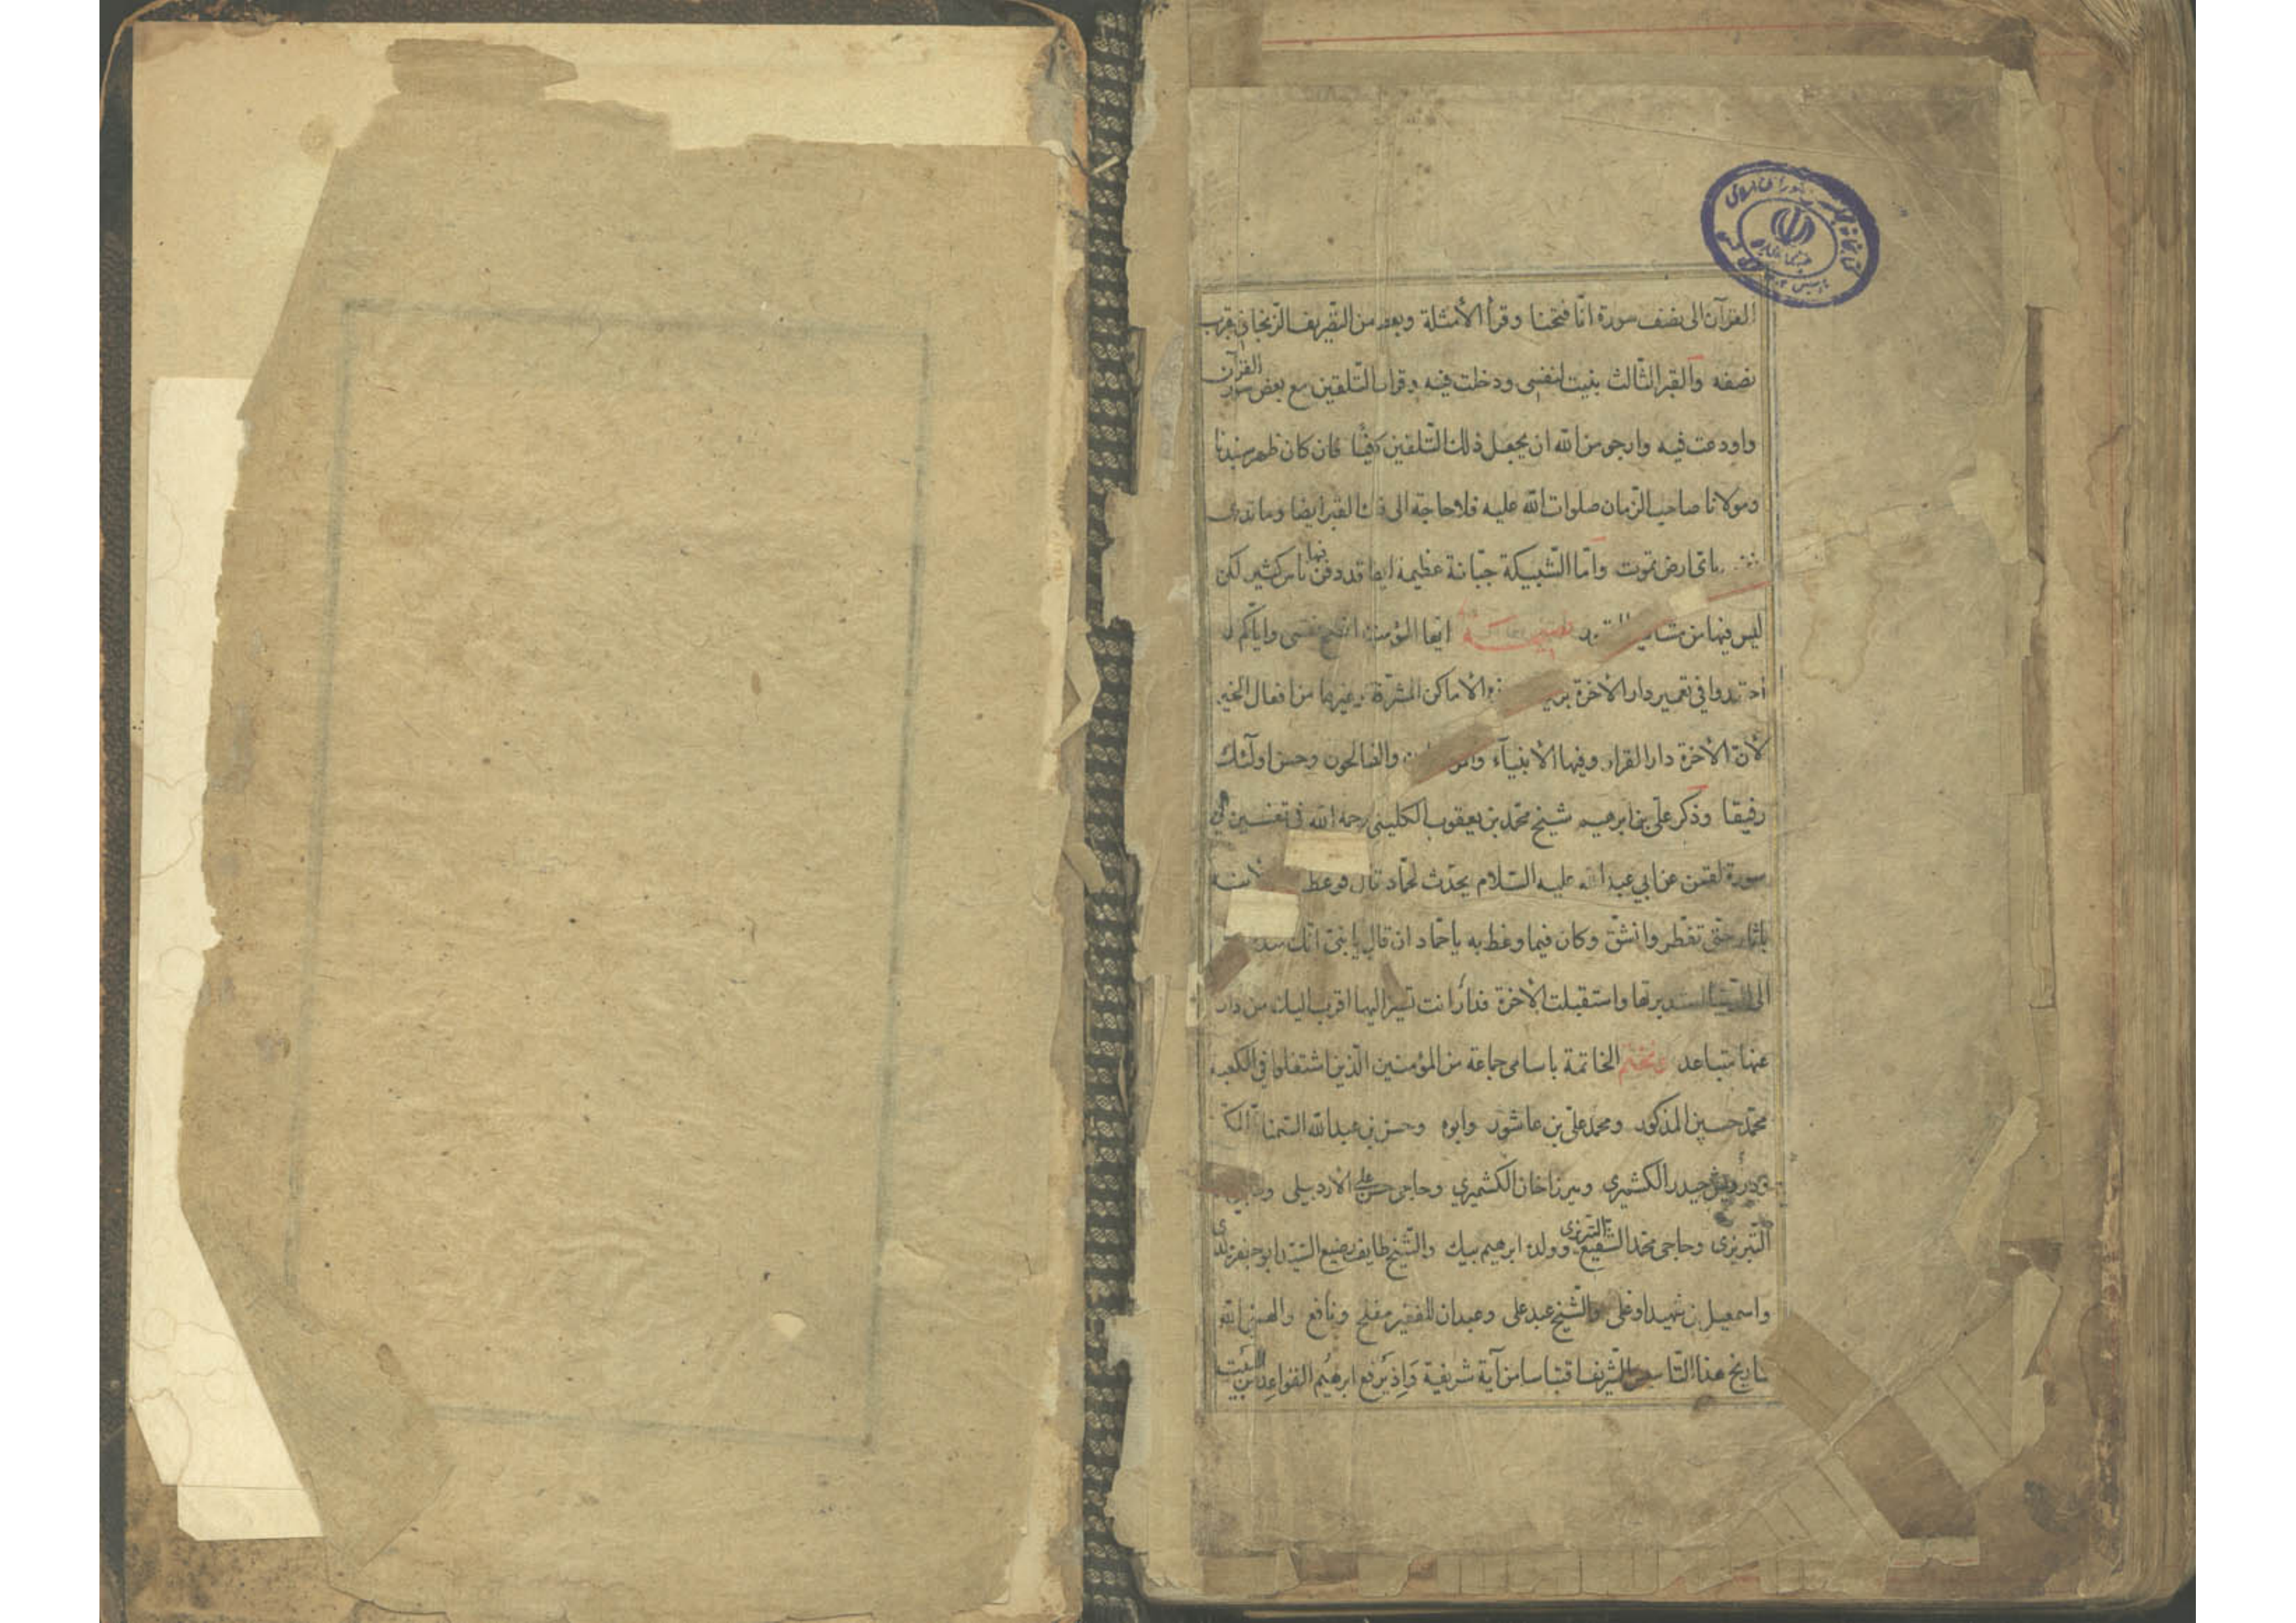 القرآن الى نصف سورة انّا فتحنا وقرأ الأمثلة وبعد من التّصريف الزّنجانى قريب
نصفه والقبر الثّالث بنيت لنفسى ودخلت فيه وقرات التّلقين مع بعض سور القرآن
واودعت فيه وارجو من الله ان يجعل ذلك التّلقين كفيّا فان كان ظهر سيدنا
ومولانا صاحب الزّمان صلوات الله عليه فلا حاجة الى ذلك القبر ايضا وما تدرى
باىّ ارض تموت وامّا الشّبيكة جبّانة عظيمة ايضا قد دفن فيها ناس كثير لكن
ليس فيها من ايّها المؤمنون انصح نفسى وايّاكم
فى تعمير دار الآخرة الأماكن المشرّفة وغيرها من افعال الخير
لأنّ الآخرة دار القرار وفيها الأنبيآء والصّالحون وحسن اولئك
رفيقا وذكر علىّ بن ابرهيم شيخ محمّد بن يعقوب الكلينى رحمه الله فى تفسير
سورة لقمن عن ابي عبد الله عليه السّلام يحدّث لحمّاد قال فوعظ ابنه
باثار حتّى تفطّر وانشقّ وكان فيما وعظ به يا حمّاد ان قال يا بنىّ انّك
الى الدّنيا استدبرتها واستقبلت الآخرة فدار انت تسير اليها اقرب اليك من دار
عنها متباعد الخاتمة باسامى جماعة من المؤمنين الّذين اشتغلوا فى الكعبة
محمّد حسين المذكور ومحمد علىّ بن عاشور وابوه وحسن بن عبد الله السّمنانى
ودرويش حيدر الكشميرى وميرزا خان الكشميري وحاجى حسن على الأردبيلى
التّبريزى وحاجى محمّد الشّفيع التّبريزى وولده ابرهيم بيك والشّيخ طايف رضيع السّيّد ابو جعفر ولدى
واسمعيل بن شهيد اوغلى والشّيخ عبد على وعبدان للفقير مفلح ونافع والهمنى الله
تاريخ هذا التّاسيس الشّريف اقتباسا من آية شريفة وَاِذْ يَرْفع ابرهيُم القواعِد من البَيت